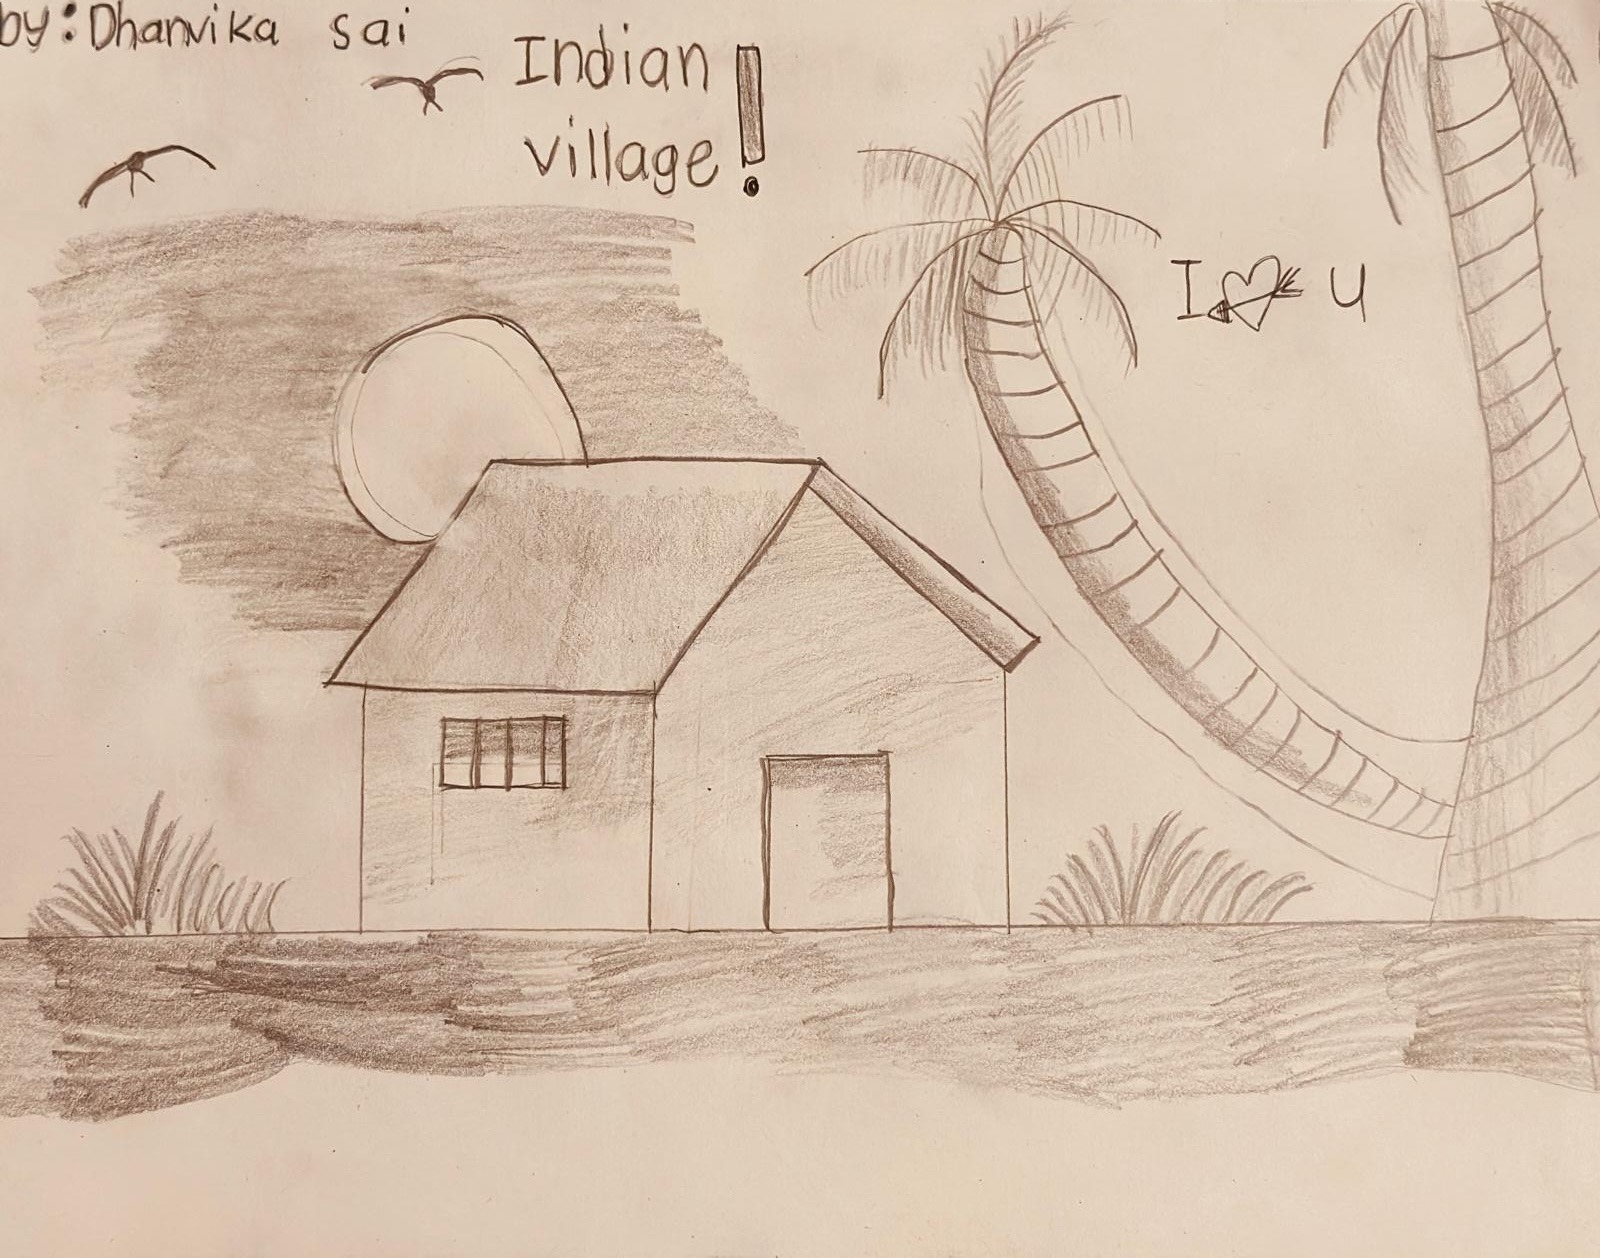 by: Dhanvika sai
Indian
village!
I ♥ u